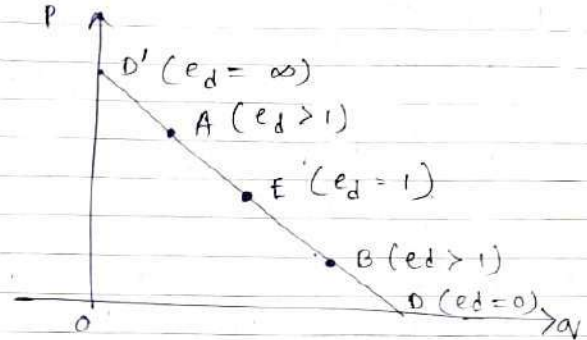 P
D' (e_d = ∞)
A (e_d > 1)
E (e_d = 1)
B (ed > 1)
D (ed = 0)
O
q